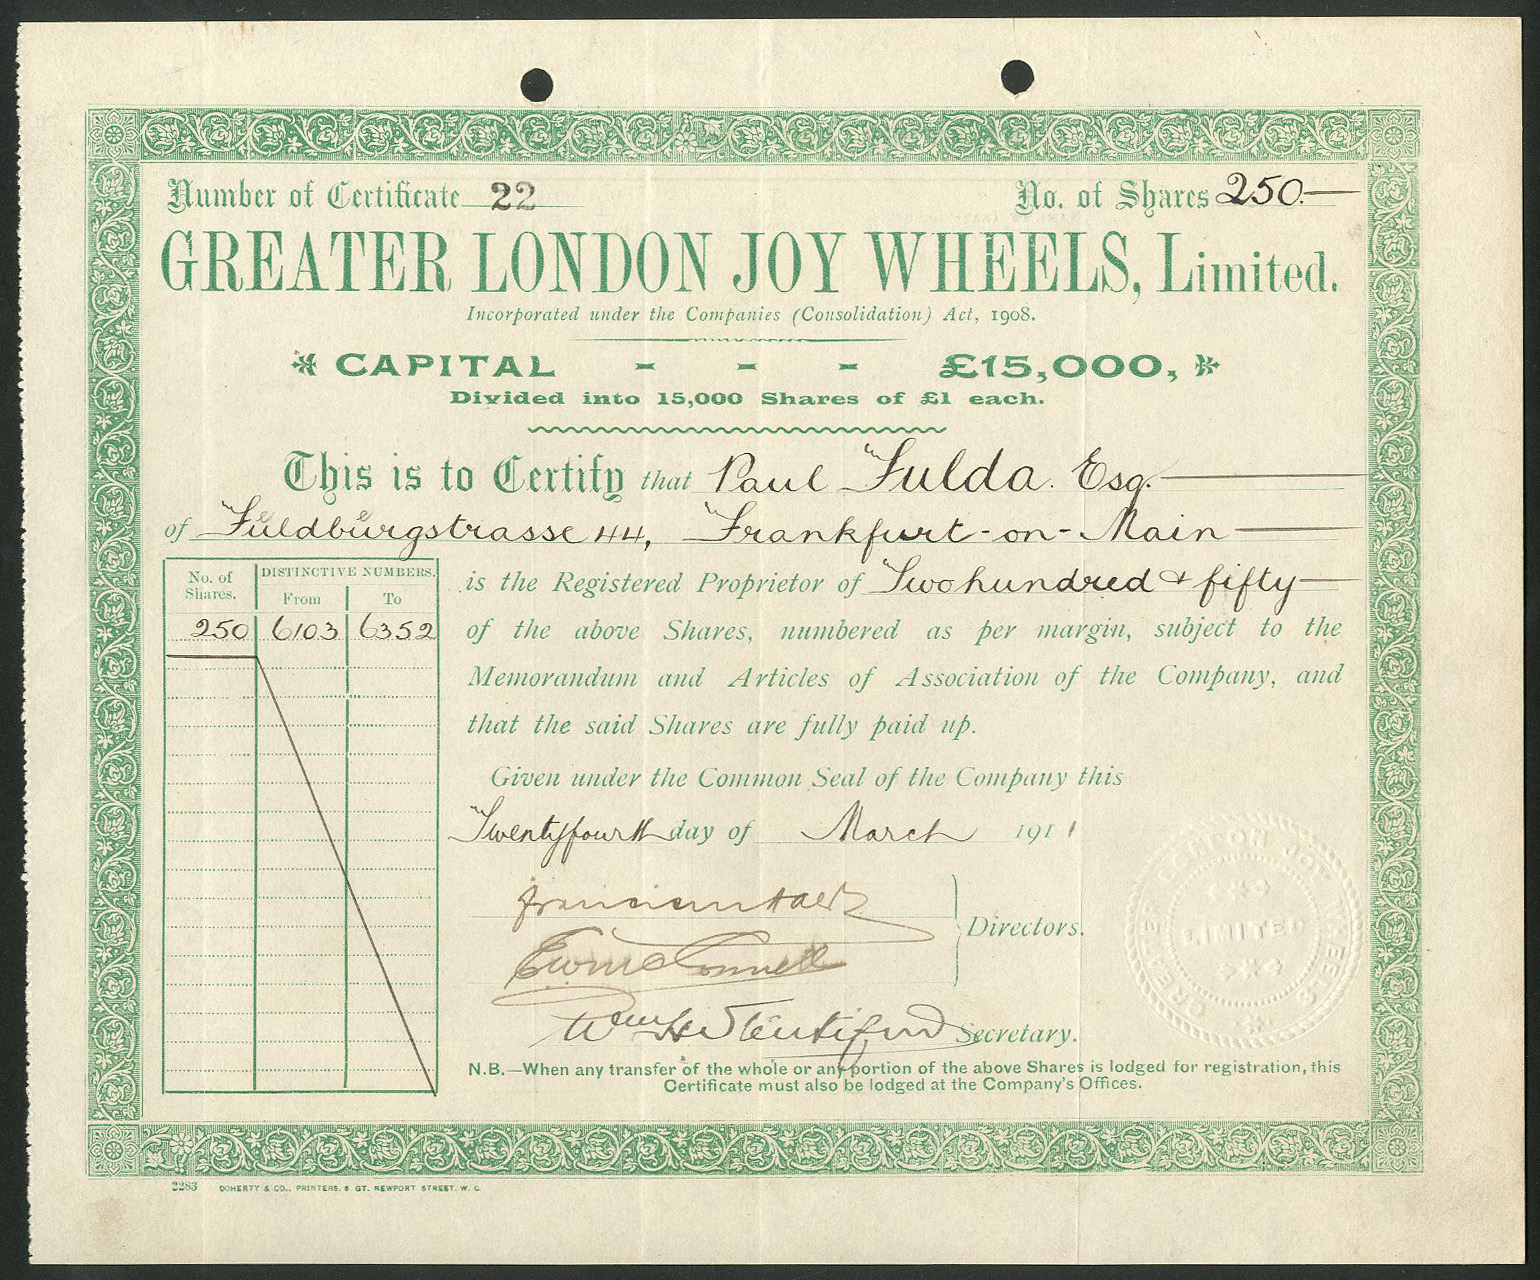 Number of Certificate 22 No. of Shares 250.—
GREATER LONDON JOY WHEELS, Limited.
Incorporated under the Companies (Consolidation) Act, 1908.
CAPITAL - - - £15,000,
Divided into 15,000 Shares of £1 each.
This is to Certify that Paul Fulda. Esq.
of Fuldburgstrasse 44, Frankfurt-on-Main
No. of Shares. DISTINCTIVE NUMBERS.
From To
250 6103 6352
is the Registered Proprietor of Two hundred & fifty
of the above Shares, numbered as per margin, subject to the
Memorandum and Articles of Association of the Company, and
that the said Shares are fully paid up.
Given under the Common Seal of the Company this
Twentyfourth day of March 1911
Directors.
Secretary.
GREATER LONDON JOY WHEELS
LIMITED
N.B.—When any transfer of the whole or any portion of the above Shares is lodged for registration, this
Certificate must also be lodged at the Company's Offices.
2283 DOHERTY & CO., PRINTERS, 5 GT. NEWPORT STREET, W. C.